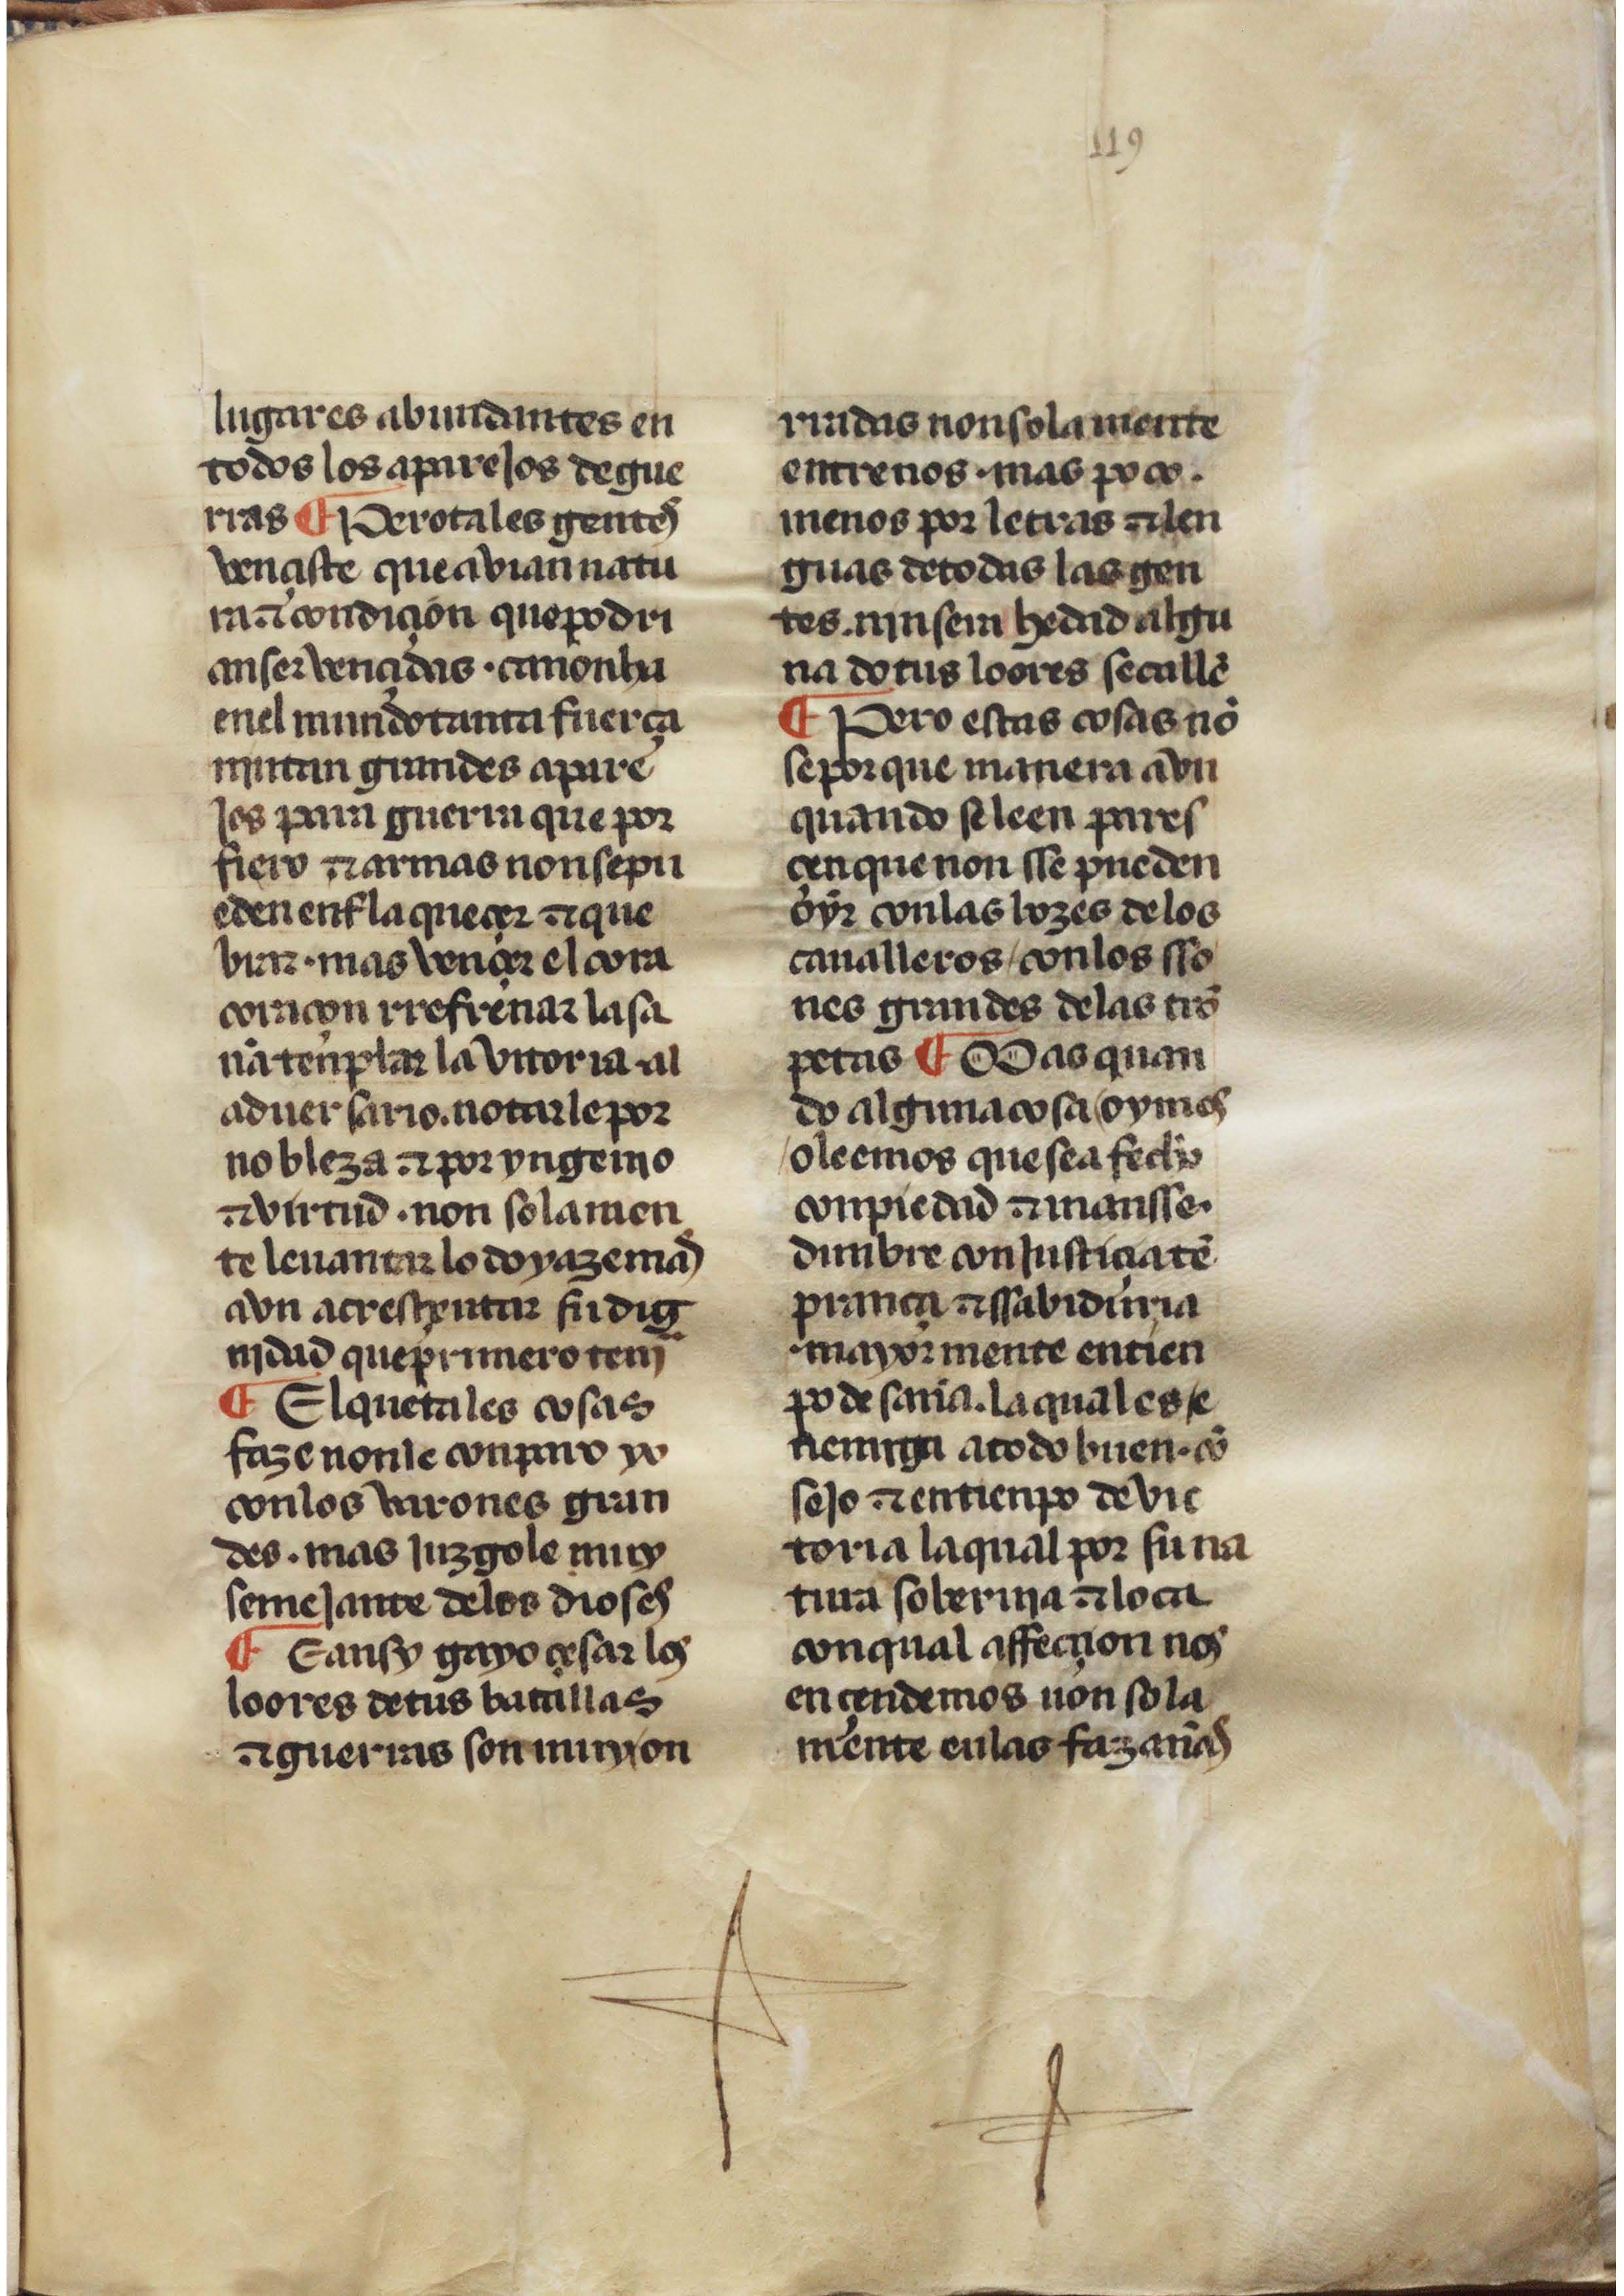 119
lugares abundantes en
todos los aparejos de gue
rras ¶ Pero tales gentes
vençiste que avian natu
ra ⁊ condiçion que podri
an ser vençidas · ca non ha
en el mundo tanta fuerça
nin tan grandes apare
jos para guerra que por
fiero ⁊ armas non se pu
eden enflaqueçer ⁊ que
brar · mas vençer el cora
coraçon rrefrenar la sa
ña tenplar la vitoria · al
aduersario . notarle por
nobleza ⁊ por yngenio
⁊ virtud · non solamen
te leuantar lo do yaze mas
avn acresçentar su dig
nidad que primero tenia
¶ El que tales cosas
faze non le conparo yo
con los varones gran
des · mas juzgole muy
semejante de los dioses
¶ E ansy gayo çesar los
loores de tus batallas
⁊ guerras son muy on
rradas non sola mente
entre nos · mas poco ·
menos por letras ⁊ len
guas de todas las gen
tes . nin sera hedad algu
na do tus loores se callē
¶ Pero estas cosas nō
se por que manera avn
quando se leen pares
çen que non sse pueden
oyr con las bozes de los
caualleros / con los sso
nes grandes de las trō
petas ¶ Mas quan
do alguna cosa / oymos
/ o leemos que sea fecho
con piedad ⁊ mansse ·
dunbre con justiçia tē
prança ⁊ ssabiduria
· mayor mente en tien
po de saña . la qual es / e
nemiga a todo buen · cō
sejo ⁊ en tienpo de vic
toria la qual por su na
tura soberuia ⁊ loca
con qual affecçion nos
ençendemos non sola
mente en las fazañas